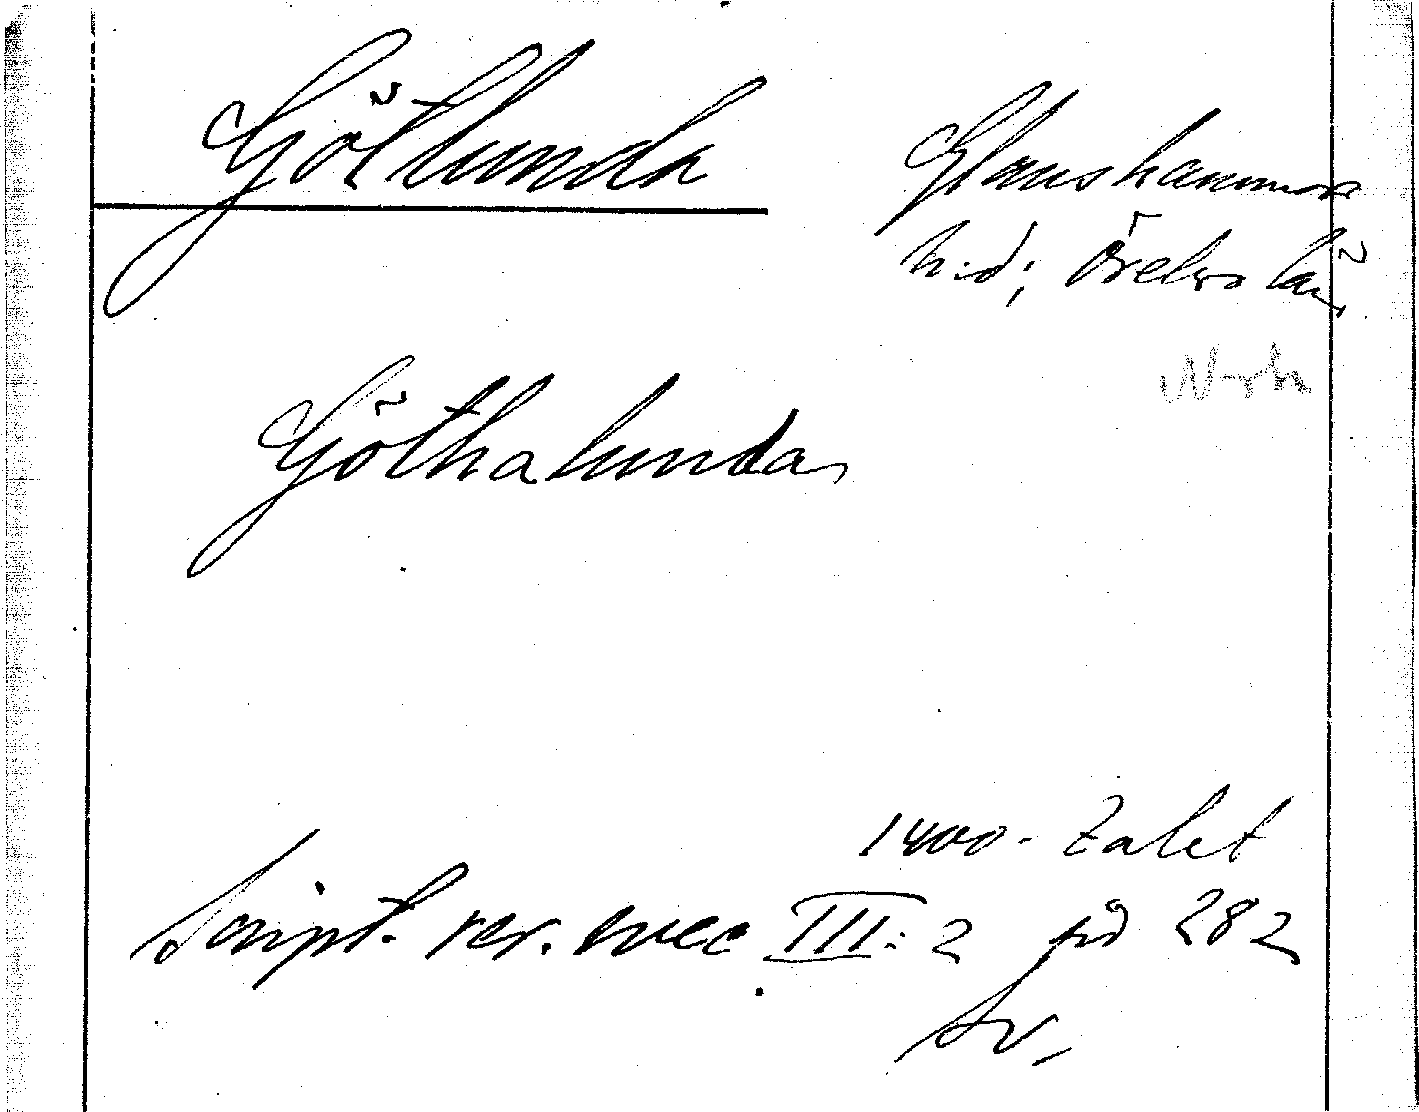 Götlunda
Glanshammars
h:d; Örebro län
Göthalunda
1400-talet
Script. rer. svec III: 2 sid 282
Sv.